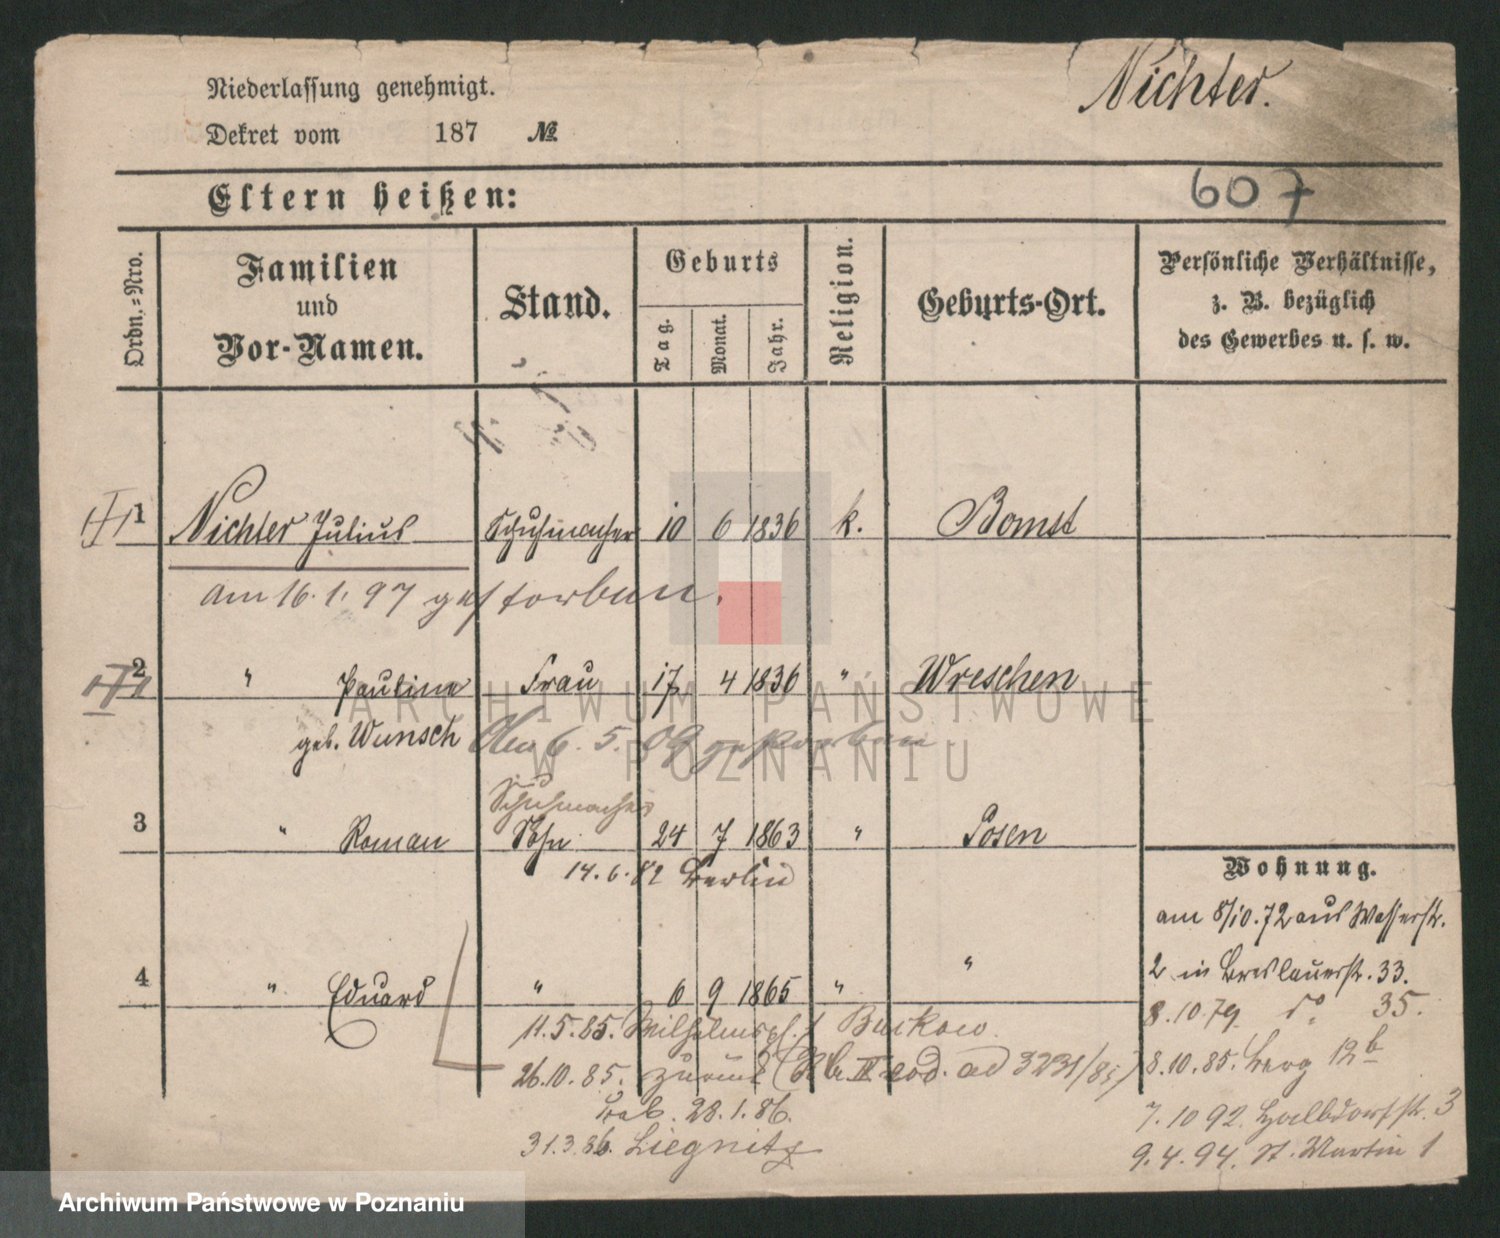 Niederlassung genehmigt.
Nichter.
Dekret vom 187 №
Eltern heißen:
607
Ordn.=Nro.
Familien
und
Vor-Namen.
Stand.
Geburts
Tag.
Monat.
Jahr.
Religion.
Geburts-Ort.
Persönliche Verhältnisse,
z. B. bezüglich
des Gewerbes u. s. w.
1 Nichter Julius Schuhmacher 10 6 1836 k. Bomst
am 16.1.97 gestorben.
2 " Pauline Frau 17 4 1836 " Wreschen
geb. Wunsch Am 6.5.09 gestorben
Schuhmacher
3 " Roman Sohn 24 7 1863 " Posen
14.6.82 Berlin
Wohnung.
am 8/10.72 aus Wasserstr.
2 in Breslauerstr. 33.
4 " Eduard " 6 9 1865 " "
8.10.79 do 35.
11.5.85. Wilhelmspl. 1 Buckow
26.10.85. zurück ad 3231/85
8.10.85. Berg 12b
28.1.86.
7.10 92. Halbdorfstr. 3
31.3.86. Liegnitz
9.4.94. St. Martin 1
ARCHIWUM PAŃSTWOWE
W POZNANIU
Archiwum Państwowe w Poznaniu